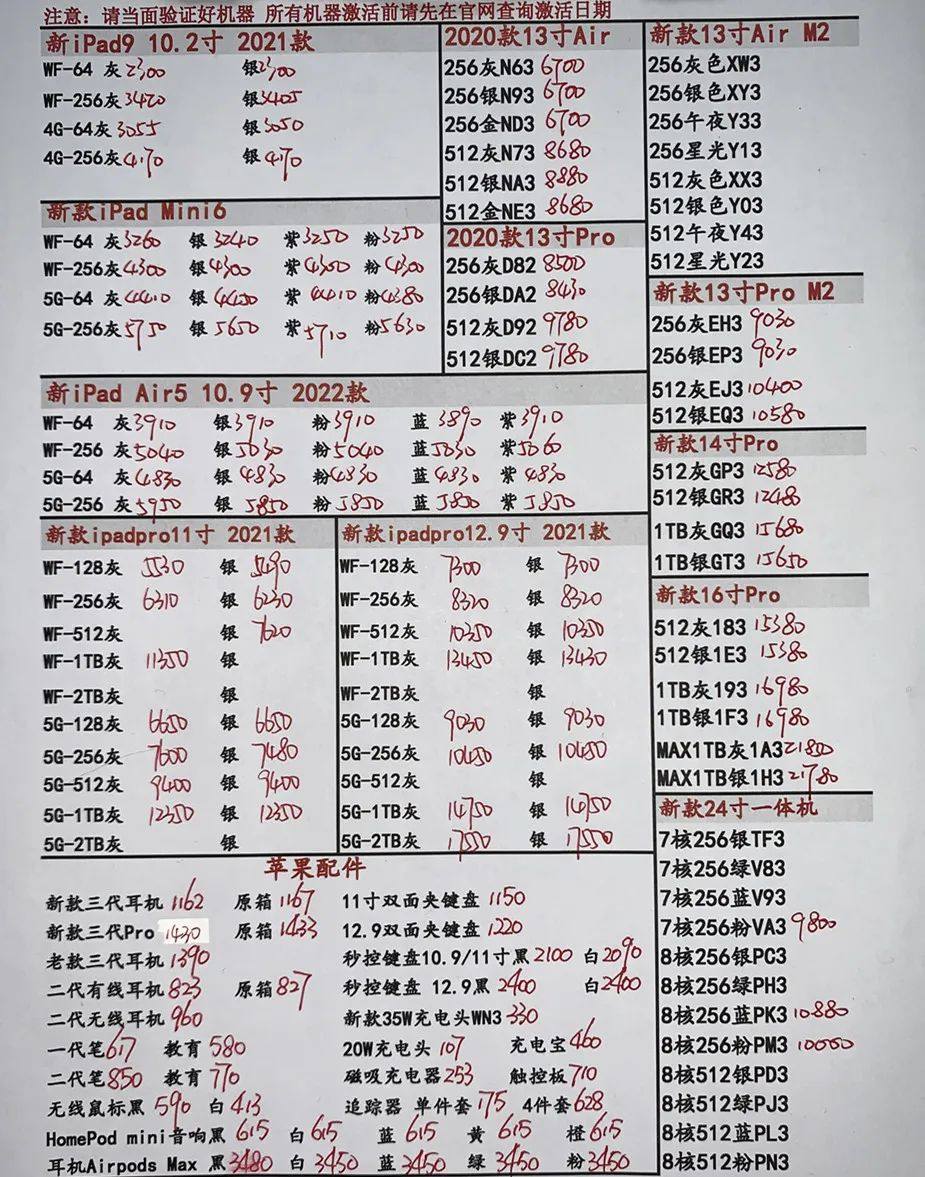 注意：请当面验证好机器 所有机器激活前请先在官网查询激活日期
新iPad9 10.2寸 2021款
WF-64 灰2300 银2300
WF-256灰3420 银3405
4G-64灰3055 银3050
4G-256灰4170 银4170
新款iPad Mini6
WF-64 灰3260 银3240 紫3250 粉3250
WF-256灰4300 银4300 紫4300 粉4300
5G-64 灰4410 银4450 紫4410 粉4380
5G-256灰5750 银5650 紫5710 粉5630
2020款13寸Air
256灰N63 6700
256银N93 6700
256金ND3 6700
512灰N73 8680
512银NA3 8880
512金NE3 8680
2020款13寸Pro
256灰D82 8500
256银DA2 8430
512灰D92 9780
512银DC2 9780
新款13寸Air M2
256灰色XW3
256银色XY3
256午夜Y33
256星光Y13
512灰色XX3
512银色Y03
512午夜Y43
512星光Y23
新款13寸Pro M2
256灰EH3 9030
256银EP3 9030
512灰EJ3 10400
512银EQ3 10580
新iPad Air5 10.9寸 2022款
WF-64 灰3910 银3910 粉3910 蓝3890 紫3910
WF-256 灰5040 银5030 粉5040 蓝5030 紫5060
5G-64 灰4830 银4830 粉4830 蓝4830 紫4830
5G-256 灰5950 银5850 粉5850 蓝5850 紫5850
新款ipadpro11寸 2021款
WF-128灰 5530 银 5490
WF-256灰 6310 银 6230
WF-512灰 银 7620
WF-1TB灰 11350 银
WF-2TB灰 银
5G-128灰 6650 银 6650
5G-256灰 7600 银 7480
5G-512灰 9400 银 9400
5G-1TB灰 12350 银 12350
5G-2TB灰 银
新款ipadpro12.9寸 2021款
WF-128灰 7300 银 7300
WF-256灰 8320 银 8320
WF-512灰 10350 银 10350
WF-1TB灰 13450 银 13430
WF-2TB灰 银
5G-128灰 9030 银 9030
5G-256灰 10450 银 10450
5G-512灰 银
5G-1TB灰 14750 银 14750
5G-2TB灰 17550 银 17550
新款14寸Pro
512灰GP3 12580
512银GR3 12480
1TB灰GQ3 15680
1TB银GT3 15650
新款16寸Pro
512灰183 15380
512银1E3 15380
1TB灰193 16980
1TB银1F3 16980
MAX1TB灰1A3 21800
MAX1TB银1H3 21780
新款24寸一体机
7核256银TF3
7核256绿V83
7核256蓝V93
7核256粉VA3 9800
8核256银PC3
8核256绿PH3
8核256蓝PK3 10880
8核256粉PM3 10000
8核512银PD3
8核512绿PJ3
8核512蓝PL3
8核512粉PN3
苹果配件
新款三代耳机 1162 原箱 1167 11寸双面夹键盘 1150
新款三代Pro 1430 原箱 1433 12.9双面夹键盘 1220
老款三代耳机 1390 秒控键盘10.9/11寸黑2100 白2090
二代有线耳机 823 原箱 827 秒控键盘 12.9黑 2400 白2400
二代无线耳机 960 新款35W充电头WN3 330
一代笔617 教育 580 20W充电头 107 充电宝460
二代笔850 教育 770 磁吸充电器253 触控板710
无线鼠标黑 590 白413 追踪器 单件套175 4件套628
HomePod mini音响黑 615 白 615 蓝 615 黄 615 橙 615
耳机Airpods Max 黑3480 白 3450 蓝 3450 绿 3450 粉 3450